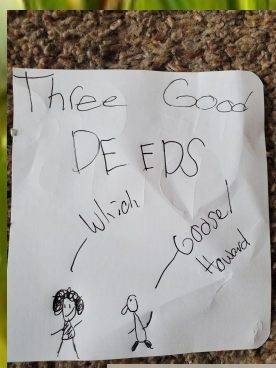 Three Good
DEEDS
Which
Goose/
Howard